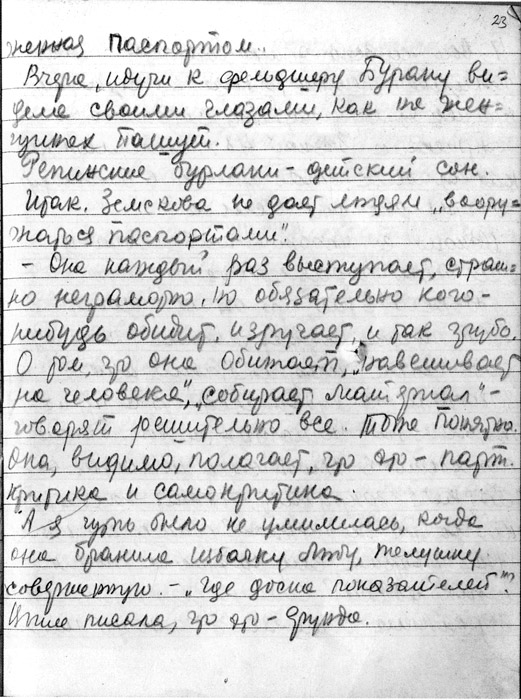 23
женная паспортом.
Вчера, идучи к фельдшеру Бурану ви=
дела своими глазами, как на жен=
щинах пашут.
Репинские бурлаки - детский сон.
Итак. Земскова не дает людям „воору=
жаться паспортами".
- Она каждый раз выступает, страш=
но неграмотно, но обязательно кого-
нибудь обидит, изругает, и так грубо.
О том, что она обижает, „навешивает
на человека", „собирает матерьял" -
говорят решительно все. Тоже понятно.
Она, видимо, полагает, что это - парт.
критика и самокритика.
А я чуть было не умилилась, когда
она бранила избачку Любу, телушку
совершенную. - „Где доска показателей"?
писала, что это - ерунда.